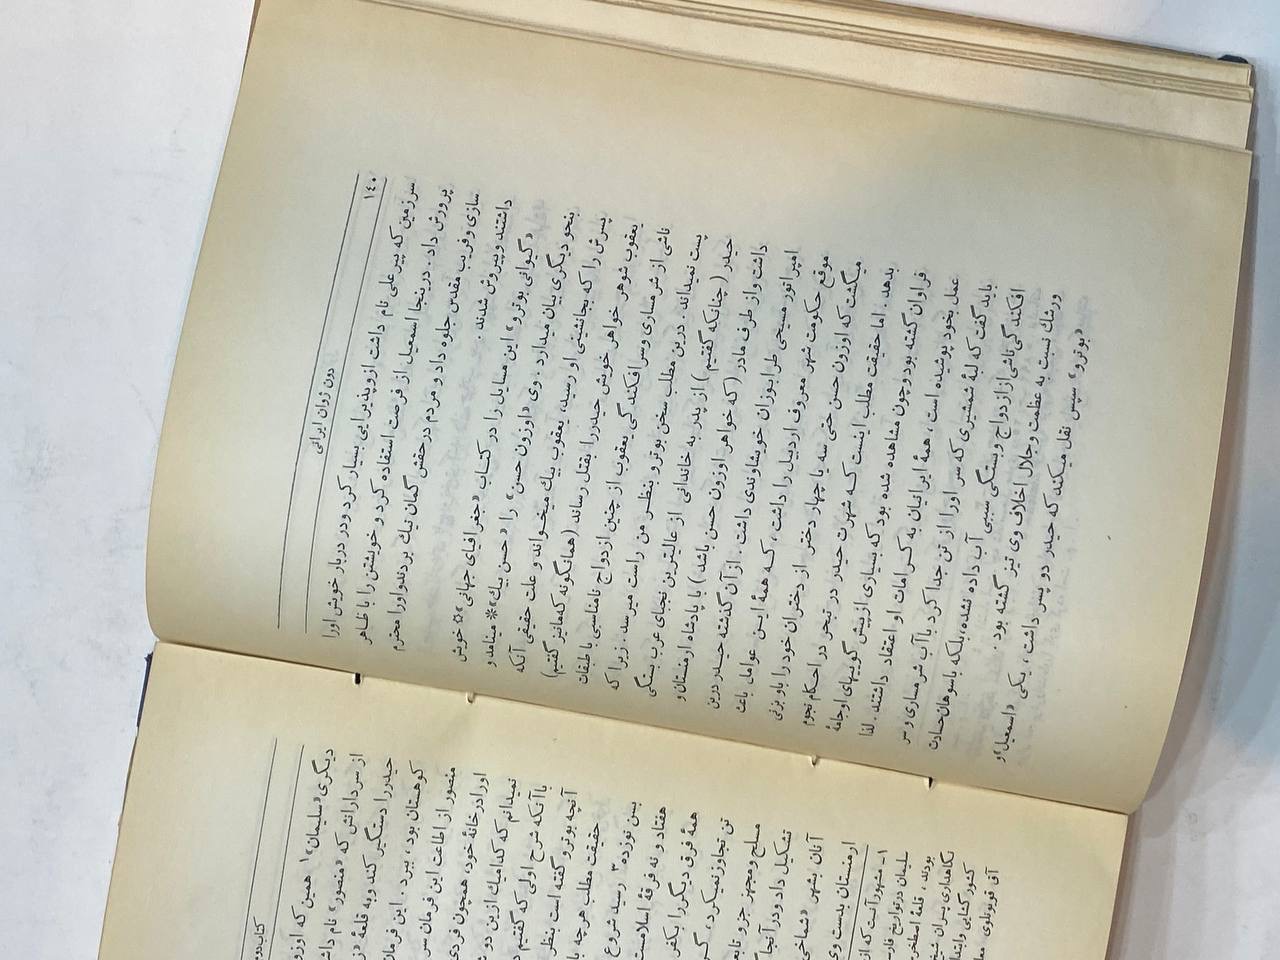 ۱۴۰
دون ژوان ایرانی
سرزمین که پیر علی نام داشت ازوپذیرایی بسیار کرد ودر دربار خویش اورا
پرورش داد . درینجا اسمعیل از فرصت استفاده کرد و خویشتن را با ظاهر
سازی وفریب مقدس جلوه داد و مردم درحقش گمان نیك بردندواورا محترم
داشتند وپیروش شدند.
«گیوانی بوترو» این مسایل را در کتاب «جغرافیای جهانی»☆ خویش
بنحو دیگری بیان میدارد . وی «اوزون حسن» را «حسن بیك»* مینامد و
پسرش را که بجانشینی او رسید، یعقوب بیك میخواند و علت حقیقی آنکه
یعقوب شوهر خواهر خویش حیدررا بقتل رساند (همانگونه که مانیز گفتیم)
ناشی از شرمساری وسرافکندگی یعقوب از چنین ازدواج نامناسبی با طبقات
پست نمیداند . درین مطلب سخن بوترو بنظر من راست میرسد. زیرا که
حیدر (چنانکه گفتیم) از پدر به خاندانی از عالیترین نجبای عرب بستگی
داشت واز طرف مادر (که خواهر اوزون حسن باشد) با پادشاه ارمنستان و
امپراتور مسیحی طرابوزان خویشاوندی داشت . از آن گذشته حیدر درین
موقع حکومت شهر معروف اردبیل را داشت ، که همهٔ این عوامل باعث
میگشت که اوزون حسن حتی سه یا چهار دختر از دختران خود را باو بزنی
بدهد. اما حقیقت مطلب اینست که شهرت حیدر در تبحر در احکام نجوم
فراوان گشته بود وچون مشاهده شده بود که بسیاری ازپیش گوییهای اوجامهٔ
عمل بخود پوشیده است ، همهٔ ایرانیان به کرامات او اعتقاد داشتند . لذا
باید گفت که لبهٔ شمشیری که سر اورا از تن جدا کرد باآب شرمساری و سر
افکندگی ناشی ازازدواج وبستگی سببی آب داده نشده، بلکه باسوهان حسادت
ورشك نسبت به عظمت وجلال اخلاف وی تیز گشته بود .
«بوترو» سپس نقل میکند که حیدر دو پسر داشت ، یکی «اسمعیل» و
کتاب دو
دیگری «سلیمان»۱ همین که اوزو
از سردارانش که «منصور» نام داش
حیدررا دستگیر کند وبه قلعهٔ «ز
کوهستان بود، ببرد . این فرمان
منصور از اطاعت این فرمان سر
اورا درخانهٔ خود، همچون فردی
نمیدانم که کدامیك ازین دو ش
باآنکه شرح اولی که گفتیم د
آنچه بوترو گفته است بنظر
حقیقت مطلب هرچه با
بسن نوزده ۳ رسید شروع
هفتاد و نه فرقهٔ اسلامست
همهٔ فرق دیگررا بکفر
تن تجاوز نمیکرد ، گر
مسلح ومجهز جر و تابع
تشکیل داد ودر آنجا
آنان ، بشهر «شماخی
ارمنستان بدست وی
۱- مشهور آنست که از
سلیمان درتواریخ فارس
بودند ، قلعهٔ اصطخر
نگاهداری پسران شیخ
کشور گشایی وابتدا
آق قویونلوی ، معا